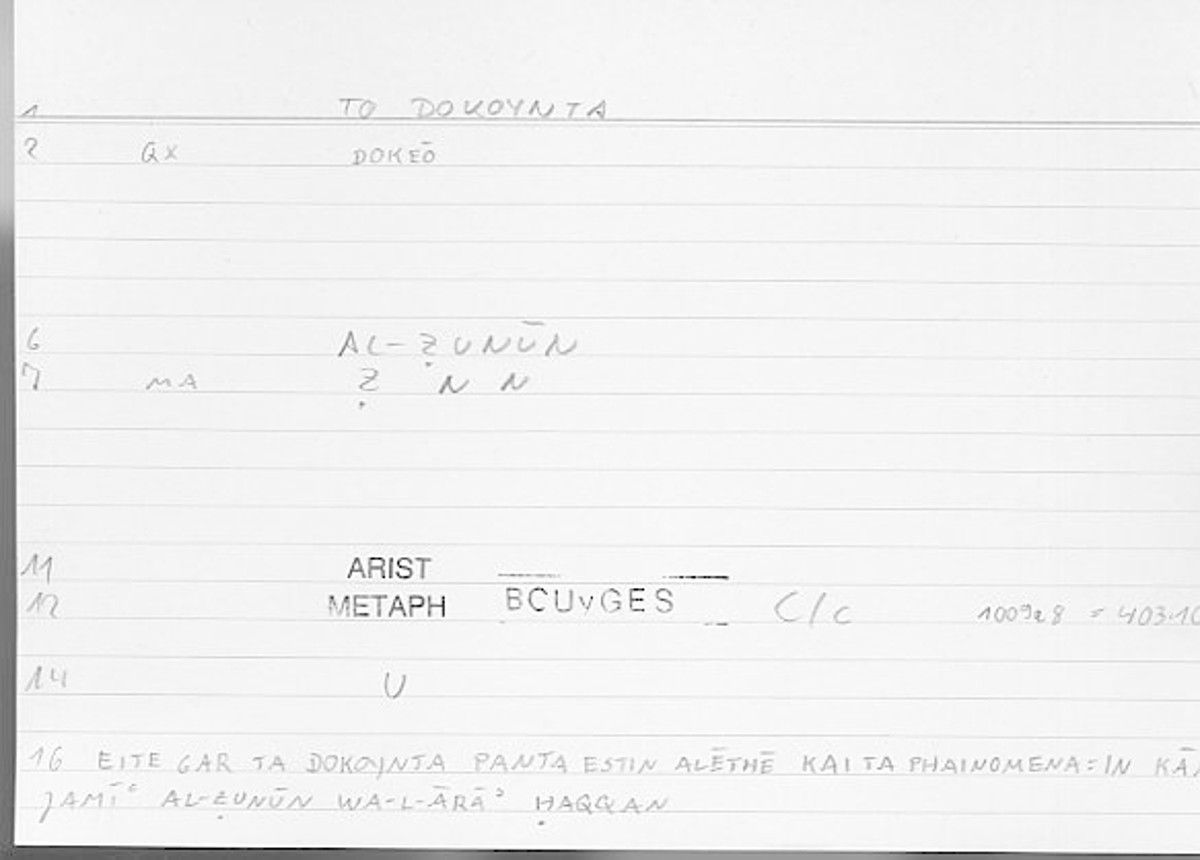 1 TO DOKOYNTA
2 QX DOKEŌ
6 AL-ẒUNŪN
7 MA Ẓ N N
11 ARIST
12 METAPH BCUvGES C/c 1009a8 = 403.10
14 U
16 EITE GAR TA DOKOYNTA PANTA ESTIN ALĒTHĒ KAI TA PHAINOMENA : IN
JAMĪʿ AL-ẒUNŪN WA-L-ĀRĀʾ ḤAQQAN